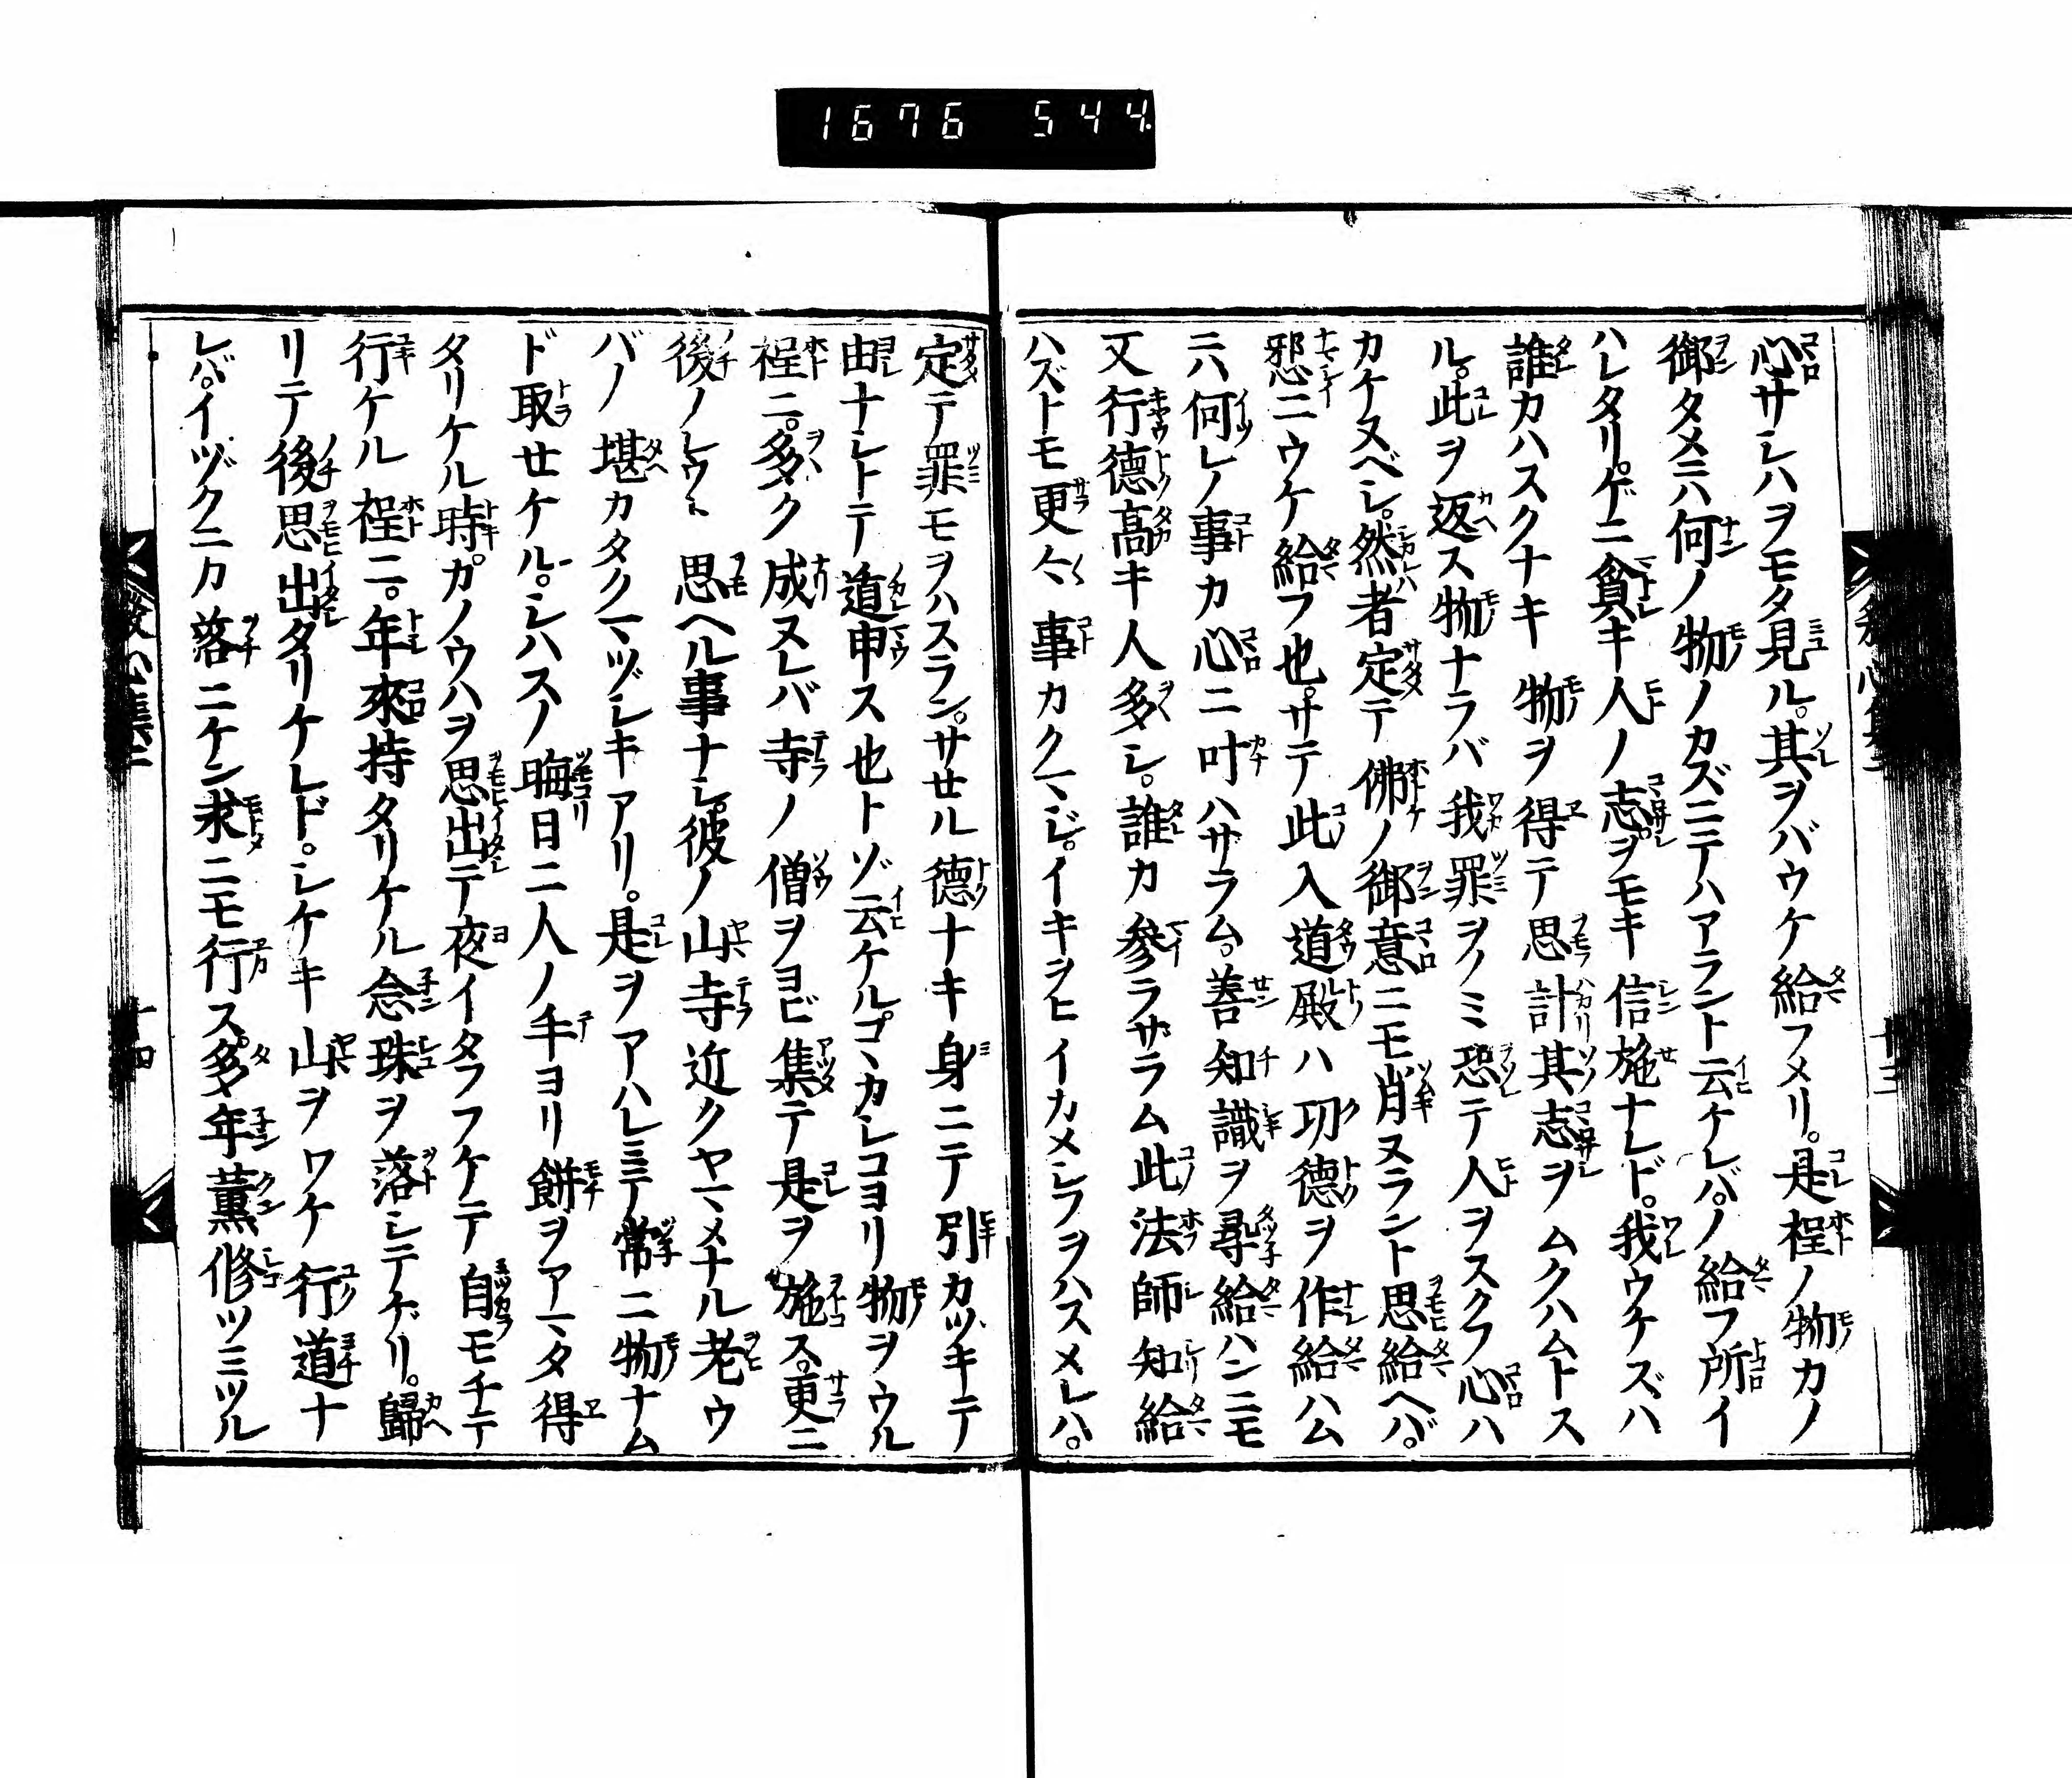 1676 544
心サシハヲモタ見ル。其ヲバウケ給フメリ。是程ノ物カノ
御タメニハ何ノ物ノカズニテハアラント云ケレバ。ノ給フ所イ
ハレタリ。ゲニ貧キ人ノ志ヲモキ信施ナレド。我ウケズハ
誰カハスクナキ物ヲ得テ思計其志ヲムクハムトス
ル。此ヲ返ス物ナラバ我罪ヲノミ恐テ人ヲスクフ心ハ
カケヌベシ。然者定テ佛ノ御意ニモ背ヌラント思給ヘバ。
邪ニウケ給フ也。サテ此入道殿ハ功德ヲ作給ハム
ニハ何レノ事カ心ニ叶ハサラム。善知識ヲ尋給ハンニモ
又行德髙キ人多シ。誰カ參ラザラム此法師知給
ハズトモ更々事カクマジ。イキヲヒイカメシフヲハスメレハ。
定テ罪モヲハスラン。サセル德ナキ身ニテ引カツキテ
由ナシトテ道申ス也トゾ云ケルゴヽカシコヨリ物ヲウル
程ニ。多ク成ヌレバ寺ノ僧ヲヨビ集テ是ヲ施ス。更ニ
後ノレウヽ思ヘル事ナシ。彼ノ山寺近クヤマメナル老ウ
バノ堪カタクマヅシキアリ。是ヲアハレミテ常ニ物ナム
ド取セケル。シハスノ晦日ニ人ノ手ヨリ餅ヲアマタ得
タリケル時。カノウハヲ思出テ夜イタフフケテ自モチテ
行ケル程ニ。年來持タリケル念珠ヲ落シテゲリ。歸
リテ後思出タリケレド。シケキ山ヲワケ行道ナ
レバ。イヅクニカ落ニケン求ニモ行ス。多年薰修ツミツル
發心集
十四